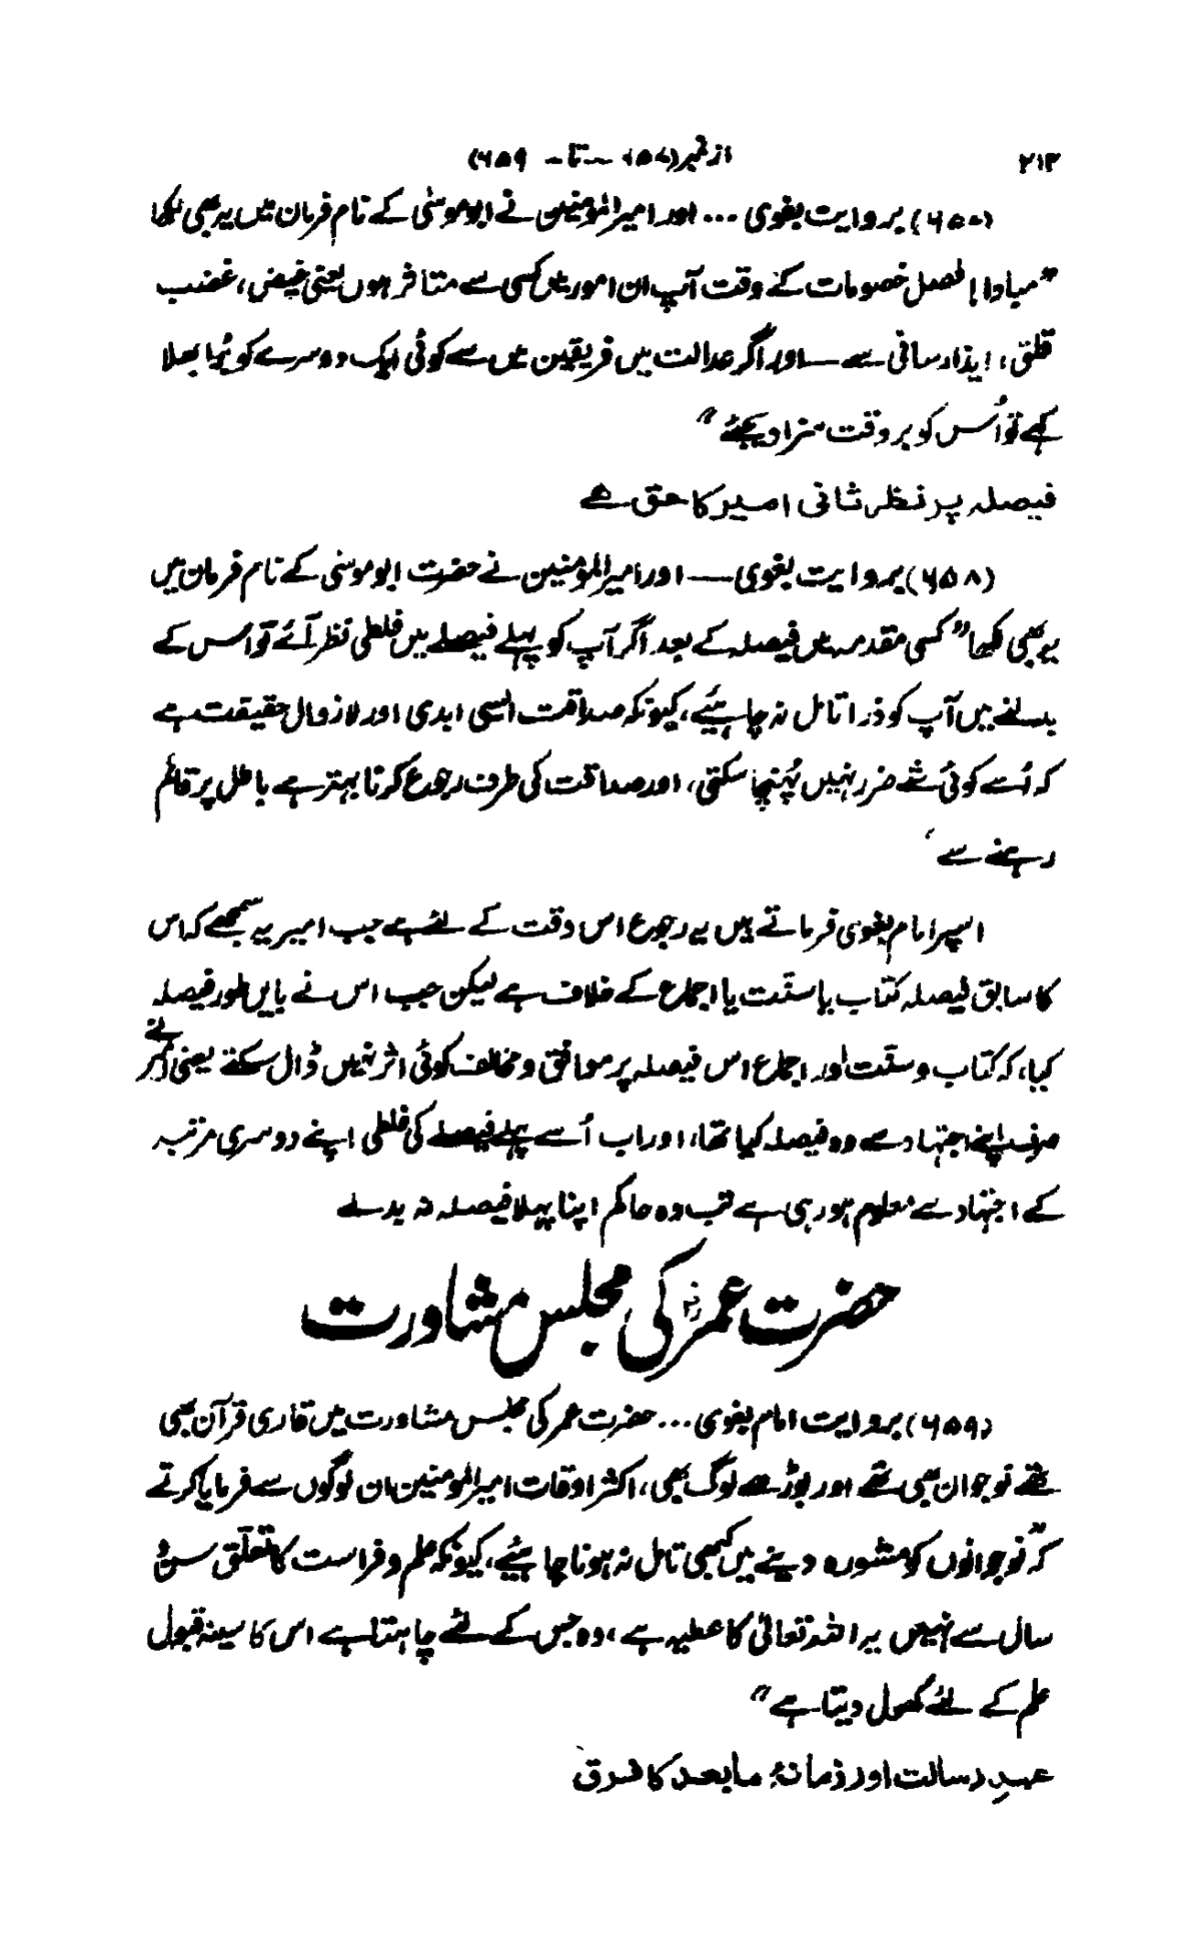 ۲۱۲ از نمبر (۶۵۷ — تا — ۶۵۹)
(۶۵۷) بروایت بغوی ... اور امیرالمؤمنین نے ابوموسٰی کے نام فرمان میں یہ بھی لکھا
"مبادا! فصل خصومات کے وقت آپ ان امور میں کسی سے متاثر ہوں یعنی غیض، غضب
قلق، ایذا رسانی سے — اور اگر عدالت میں فریقین میں سے کوئی ایک دوسرے کو بُرا بھلا
کہے تو اُس کو بروقت سزا دیجئے"
فیصلہ پر نظر ثانی امیر کا حق ہے
(۶۵۸) بروایت بغوی — اور امیرالمؤمنین نے حضرت ابوموسٰی کے نام فرمان میں
یہ بھی لکھا "کسی مقدمہ میں فیصلہ کے بعد اگر آپ کو پہلے فیصلے میں غلطی نظر آئے تو اس کے
بدلنے میں آپ کو ذرا تامل نہ چاہیئے، کیونکہ صداقت ایسی ابدی اور لازوال حقیقت ہے
کہ اُسے کوئی شے ضرر نہیں پُہنچا سکتی، اور صداقت کی طرف رجوع کرنا بہتر ہے باطل پر قائم
رہنے سے‘
اسپر امام بغوی فرماتے ہیں یہ رجوع اس وقت کے لئے ہے جب امیر یہ سمجھے کہ اس
کا سابق فیصلہ کتاب یا سنّت یا اجماع کے خلاف ہے لیکن جب اس نے بایں طور فیصلہ
کیا، کہ کتاب و سنّت اور اجماع اس فیصلہ پر موافق و مخالف کوئی اثر نہیں ڈال سکتے یعنی اگر اس نے
صرف اپنے اجتہاد سے وہ فیصلہ کیا تھا، اور اب اُسے پہلے فیصلے کی غلطی اپنے دوسری مرتبہ
کے اجتہاد سے معلوم ہو رہی ہے تب وہ حاکم اپنا پہلا فیصلہ نہ بدلے
حضرت عمرؓ کی مجلس مشاورت
(۶۵۹) بروایت امام بغوی ... حضرت عمر کی مجلس مشاورت میں قاری قرآن بھی
تھے نوجوان بھی تھے اور بوڑھے لوگ بھی، اکثر اوقات امیرالمومنین ان لوگوں سے فرمایا کرتے
کہ "نوجوانوں کو مشورہ دینے میں کبھی تامل نہ ہونا چاہیئے، کیونکہ علم و فراست کا تعلّق سن و
سال سے نہیں یہ اللہ تعالٰی کا عطیہ ہے، وہ جس کے لئے چاہتا ہے اس کا سینہ قبول
علم کے لئے کھول دیتا ہے"
عہدِ رسالت اور زمانۂ مابعد کا فرق